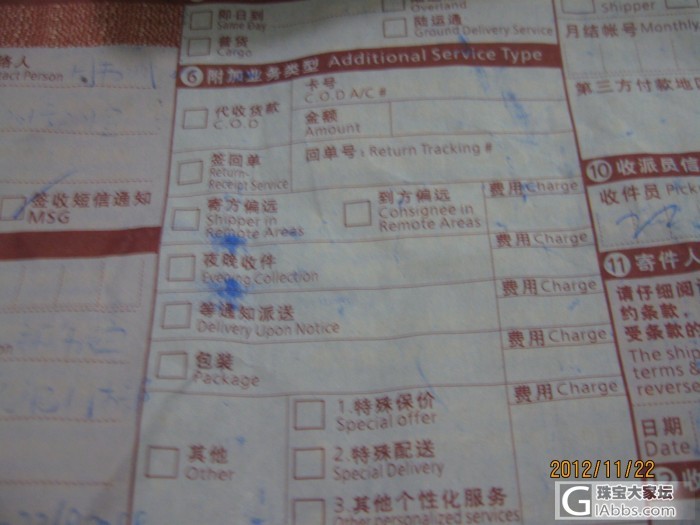 即日到
Same Day
Overland
陆运通
Ground Delivery Service
普货
Cargo
Shipper
月结帐号 Monthly
第三方付款地区
络人
tact Person
⑥ 附加业务类型 Additional Service Type
代收货款
C.O.D
卡号
C.O.D A/C #
金额
Amount
签回单
Return-
Receipt Service
回单号: Return Tracking #
寄方偏远
Shipper in
Remote Areas
到方偏远
Consignee in
Remote Areas
费用 Charge
夜晚收件
Evening Collection
费用 Charge
等通知派送
Delivery Upon Notice
费用 Charge
包装
Package
费用 Charge
其他
Other
1.特殊保价
Special offer
费用 Charge
2.特殊配送
Special Delivery
3.其他个性化服务
Other personalized services
签收短信通知
MSG
⑩ 收派员信
收件员 Pick
⑪ 寄件人
请仔细阅
约条款,
受条款的
The ship
terms &
revers
日期
Date
收
2012/11/22
珠宝大家坛
GIAbbs.com